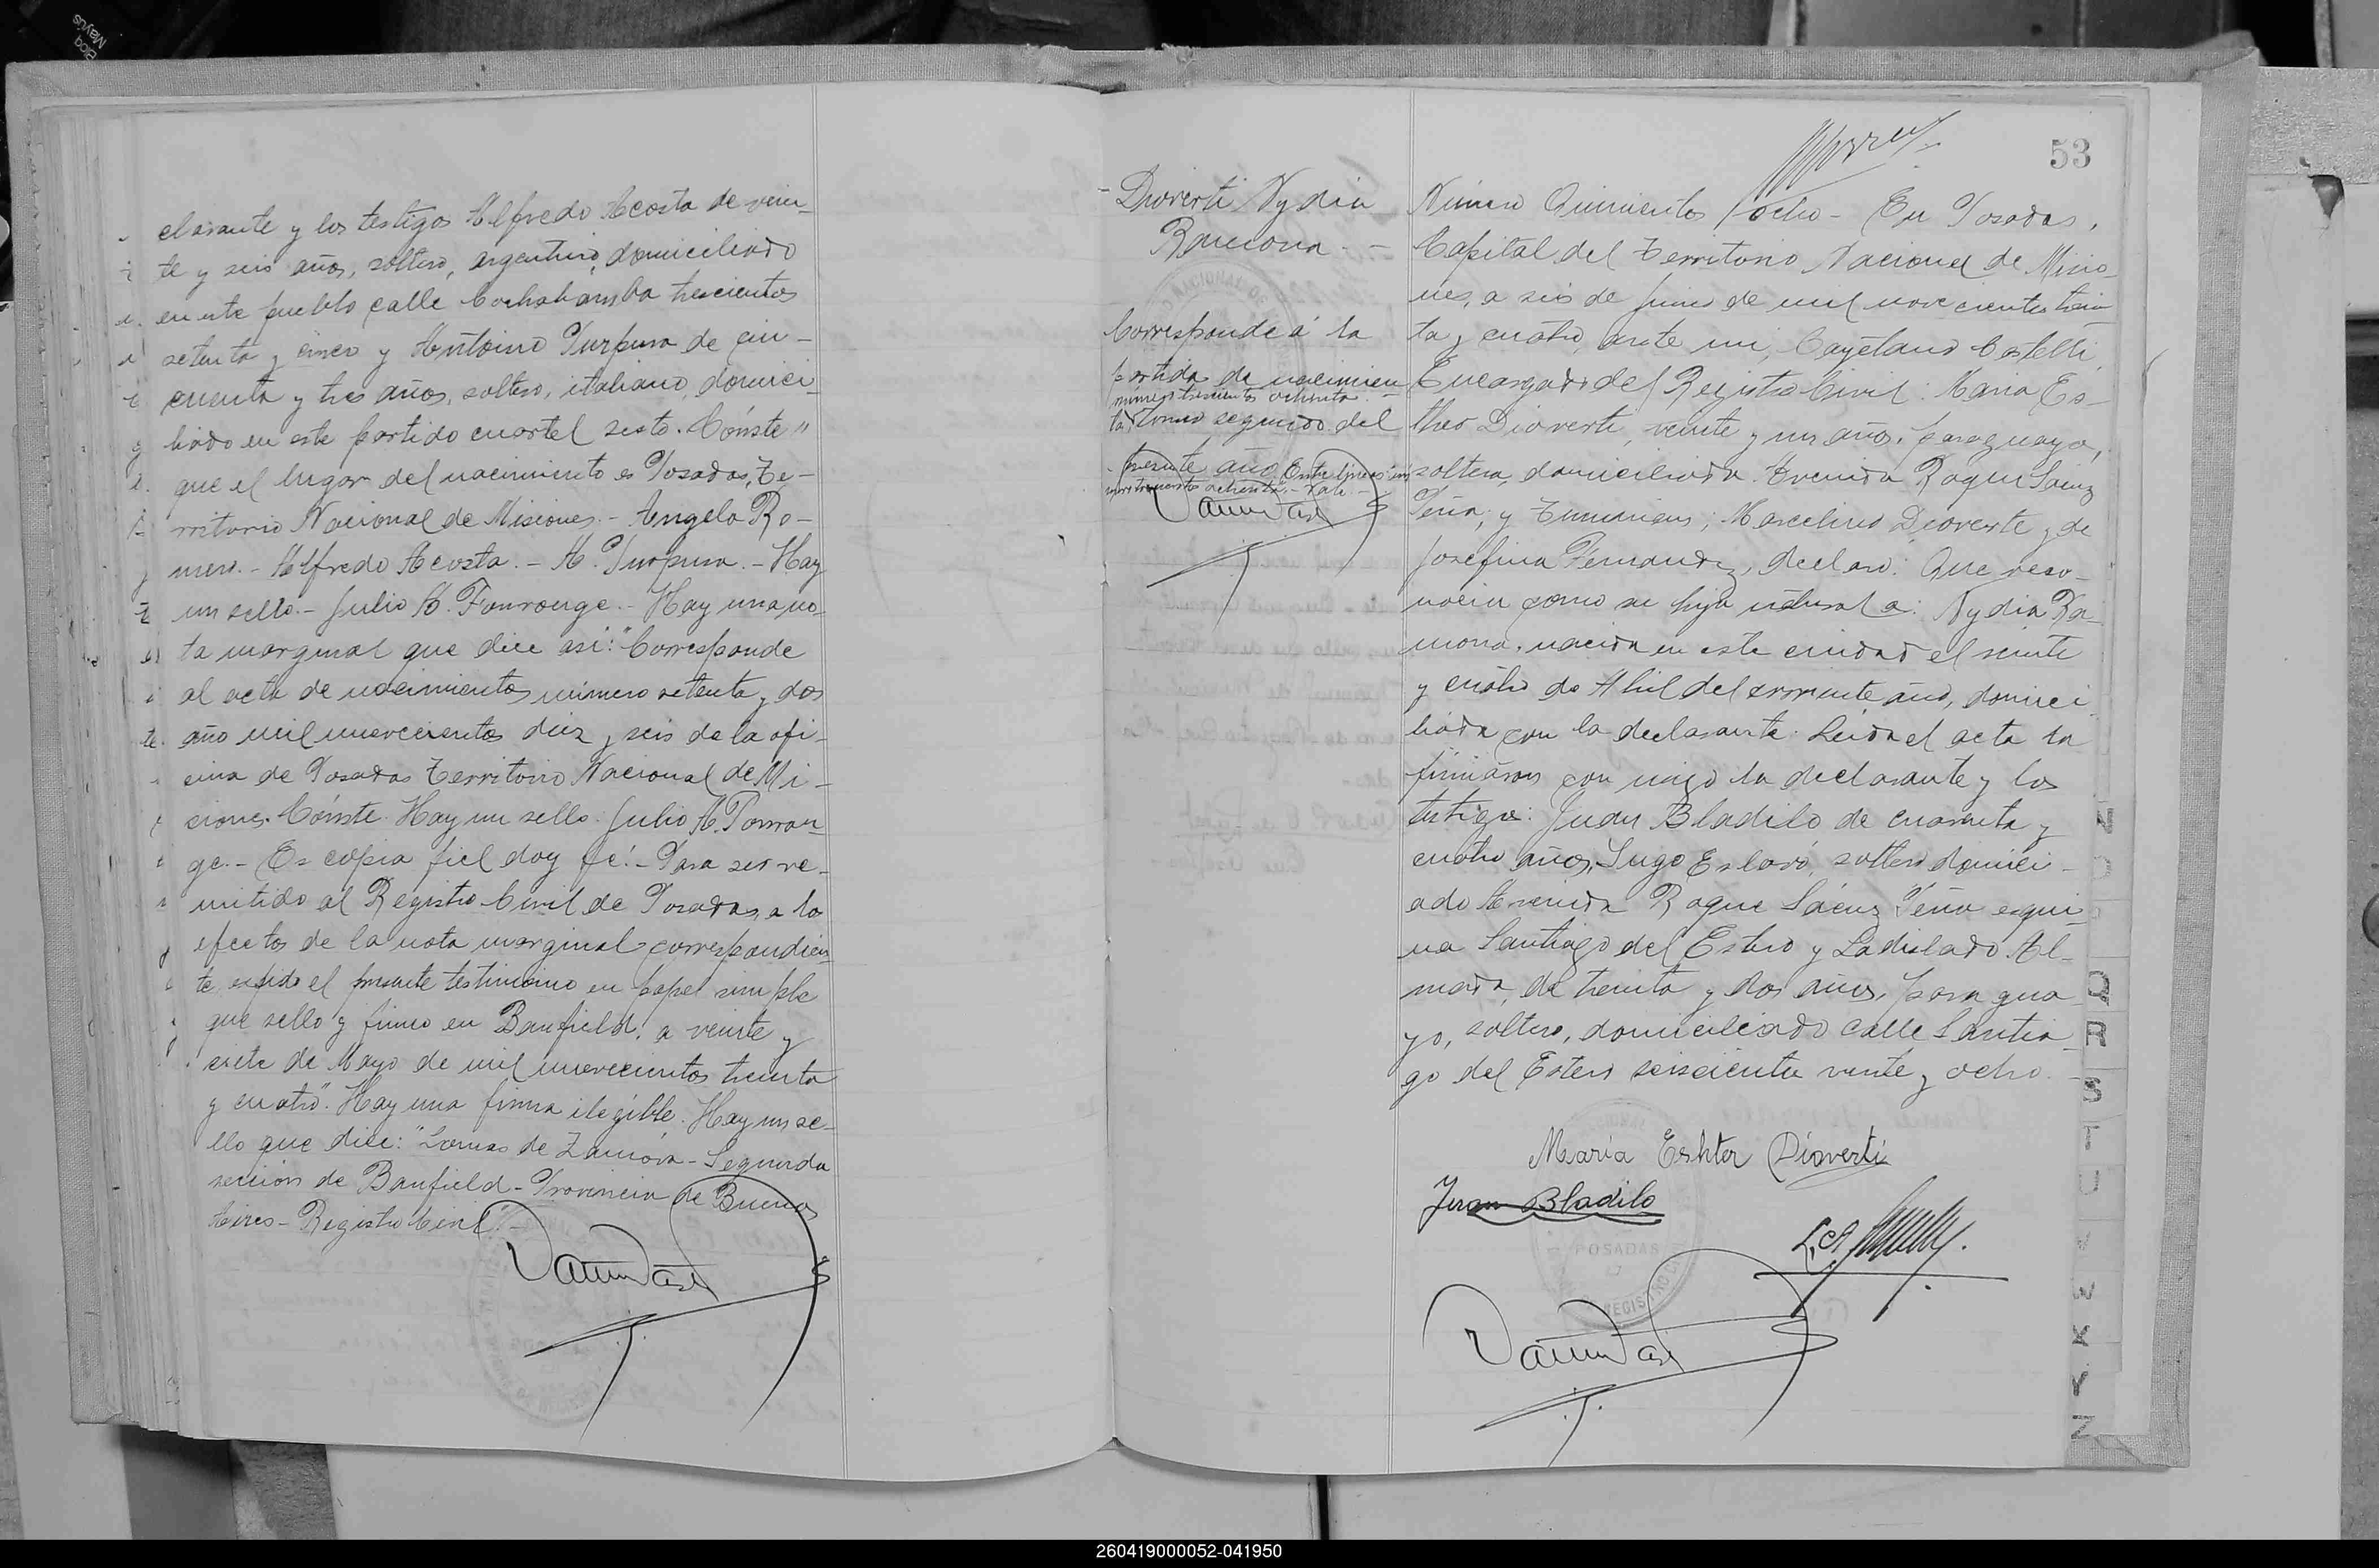 clarante y los testigos Alfredo Acosta de vein-
te y seis años, soltero, argentino, domiciliado
en este pueblo calle Cochabamba trescientos
setenta y cinco y Antonino Purpura de cin-
cuenta y tres años, soltero, italiano, domici-
liado en este partido cuartel sesto. Cónste"
que el lugar del nacimiento es Posadas, Te-
rritorio Nacional de Misiones.- Angela Ro-
mero.- Alfredo Acosta.- A. Purpura.- Hay
un sello.- Julio A. Fonrouge.- Hay una no-
ta marginal que dice así: "Corresponde
al acta de nacimientos número setenta y dos
año mil novecientos diez y seis de la ofi-
cina de Posadas Territorio Nacional de Mi-
siones. Cónste. Hay un sello. Julio A. Fonrou-
ge.- Es copia fiel doy fé.- Para ser re-
mitido al Registro Civil de Posadas, a los
efectos de la nota marginal correspondien-
te expido el presente testimonio en papel simple
que sello y firmo en Banfield, a veinte y
siete de Mayo de mil novecientos treinta
y cuatro". Hay una firma ilegible. Hay un se-
llo que dice: "Lomas de Zamora - Segunda
sección de Banfield - Provincia de Buenos
Aires - Registro Civil".-
53
Dioverti Nydia
Ramona.-
Corresponde á la
partida de nacimien
número trescientos ochenta.-
to, tomo segundo del
presente año. Entre lineas: nú
mero trescientos ochenta".- Vale.-
Número Quinientos ocho - En Posadas,
Capital del Territorio Nacional de Misio-
nes, a seis de Junio de mil novecientos trein-
ta y cuatro, ante mi, Cayetano Castelli,
Encargado del Registro Civil: Maria Es-
ther Dioverti, veinte y un años, paraguaya,
soltera, domiciliada Avenida Roque Saenz
Peña, y Marcelino Dioverte y de
Josefina Fernandez, declaró: Que reco-
nocia como su hija natural a: Nydia Ra-
mona, nacida en esta ciudad el veinte
y cuatro de Abril del corriente año, domici-
liada con la declarante. Leida el acta la
firmaron con migo la declarante y los
testigos: Juan Bladilo de cuarenta y
cuatro años, Yugo Eslavo, soltero domicili-
ado Avenida Roque Sáenz Peña esqui-
na Santiago del Estero y Ladislado Al-
mada, de treinta y dos años, paragua
yo, soltero, domiciliado calle Santia-
go del Estero seiscientos veinte y ocho.-
María Eshter Dioverti
Juan Bladilo
POSADAS
Q
R
S
T
U
V
W
X
Y
Z
260419000052-041950